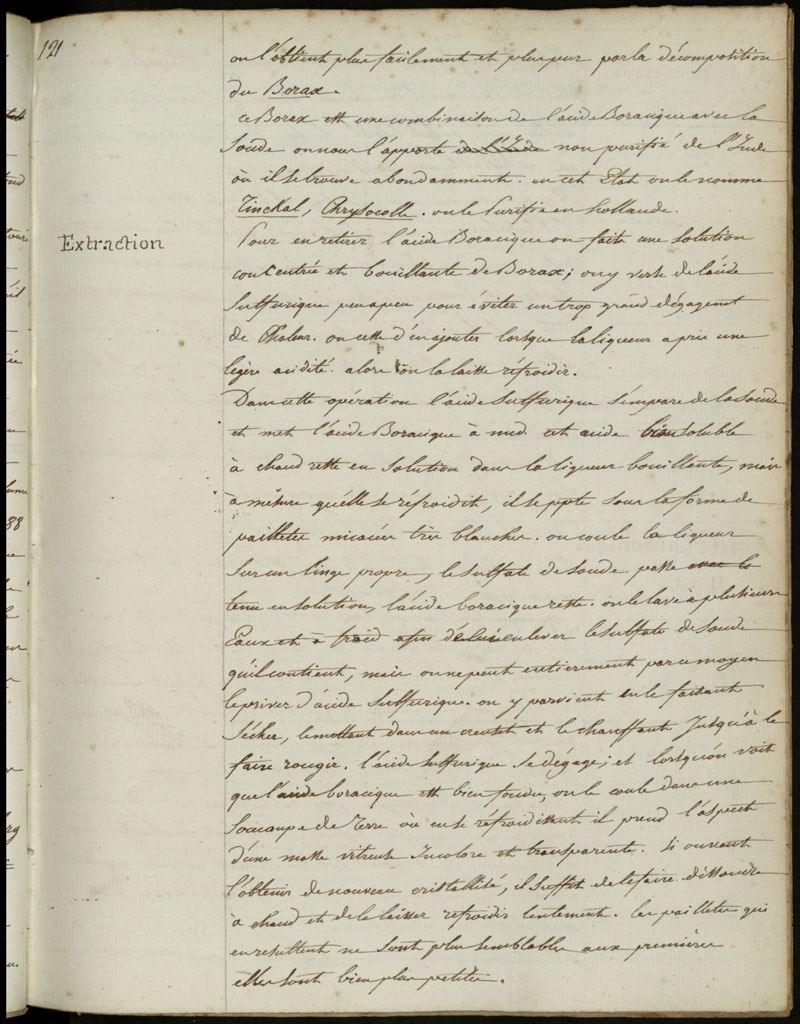 121
on l'obtient plus facilement et plus pur par la décomposition
du Borax.
Ce Borax est une combinaison de l'acide Boracique avec la
Soude on nous l'apporte de l'Inde non purifié de l'Inde
où il se trouve abondamment. en cet Etat on le nomme
Tinckal, Chrysocolle. on le Purifie en hollande.
Extraction
Pour en retirer l'acide Boracique on fait une solution
concentrée et bouillante de Borax; on y verse de l'acide
Sulfurique peu a peu pour éviter un trop grand dégagemt
de Chaleur. on cesse d'en ajouter lorsque la liqueur a pris une
légère acidité. alors on la laisse réfroidir.
Dans cette opération l'acide Sulfurique s'empare de la Soude
et met l'acide Boracique à nud. cet acide bien soluble
à chaud reste en solution dans la liqueur bouillante, mais
à mésure qu'elle se réfroidit, il se ppte sous la forme de
paillettes micacées très blanches. on coule la liqueur
sur un linge propre, le sulfate de soude passe avec la
tenu en solution, l'acide boracique reste. on le lave à plusieurs
Eaux et à froid afin de lui enlever le sulfate de Soude
qu'il contient, mais on ne peut entierement par ce moyen
le priver d'acide Sulfurique. on y parvient en le faisant
Sécher, le mettant dans un creuset et le chauffant jusqu'à le
faire rougir. l'acide sulfurique se dégage; et lorsqu'on voit
que l'acide boracique est bien fondu, on le coule dans une
Soucoupe de Terre où en se réfroidissant il prend l'aspect
d'une masse vitreuse Incolore et transparente. Si on veut
l'obtenir de nouveau cristallisé, il suffit de le faire dissoudre
à chaud et de le laisser refroidir lentement. les paillettes qui
en resultent ne sont plus semblables aux premières
elles sont bien plus petites.